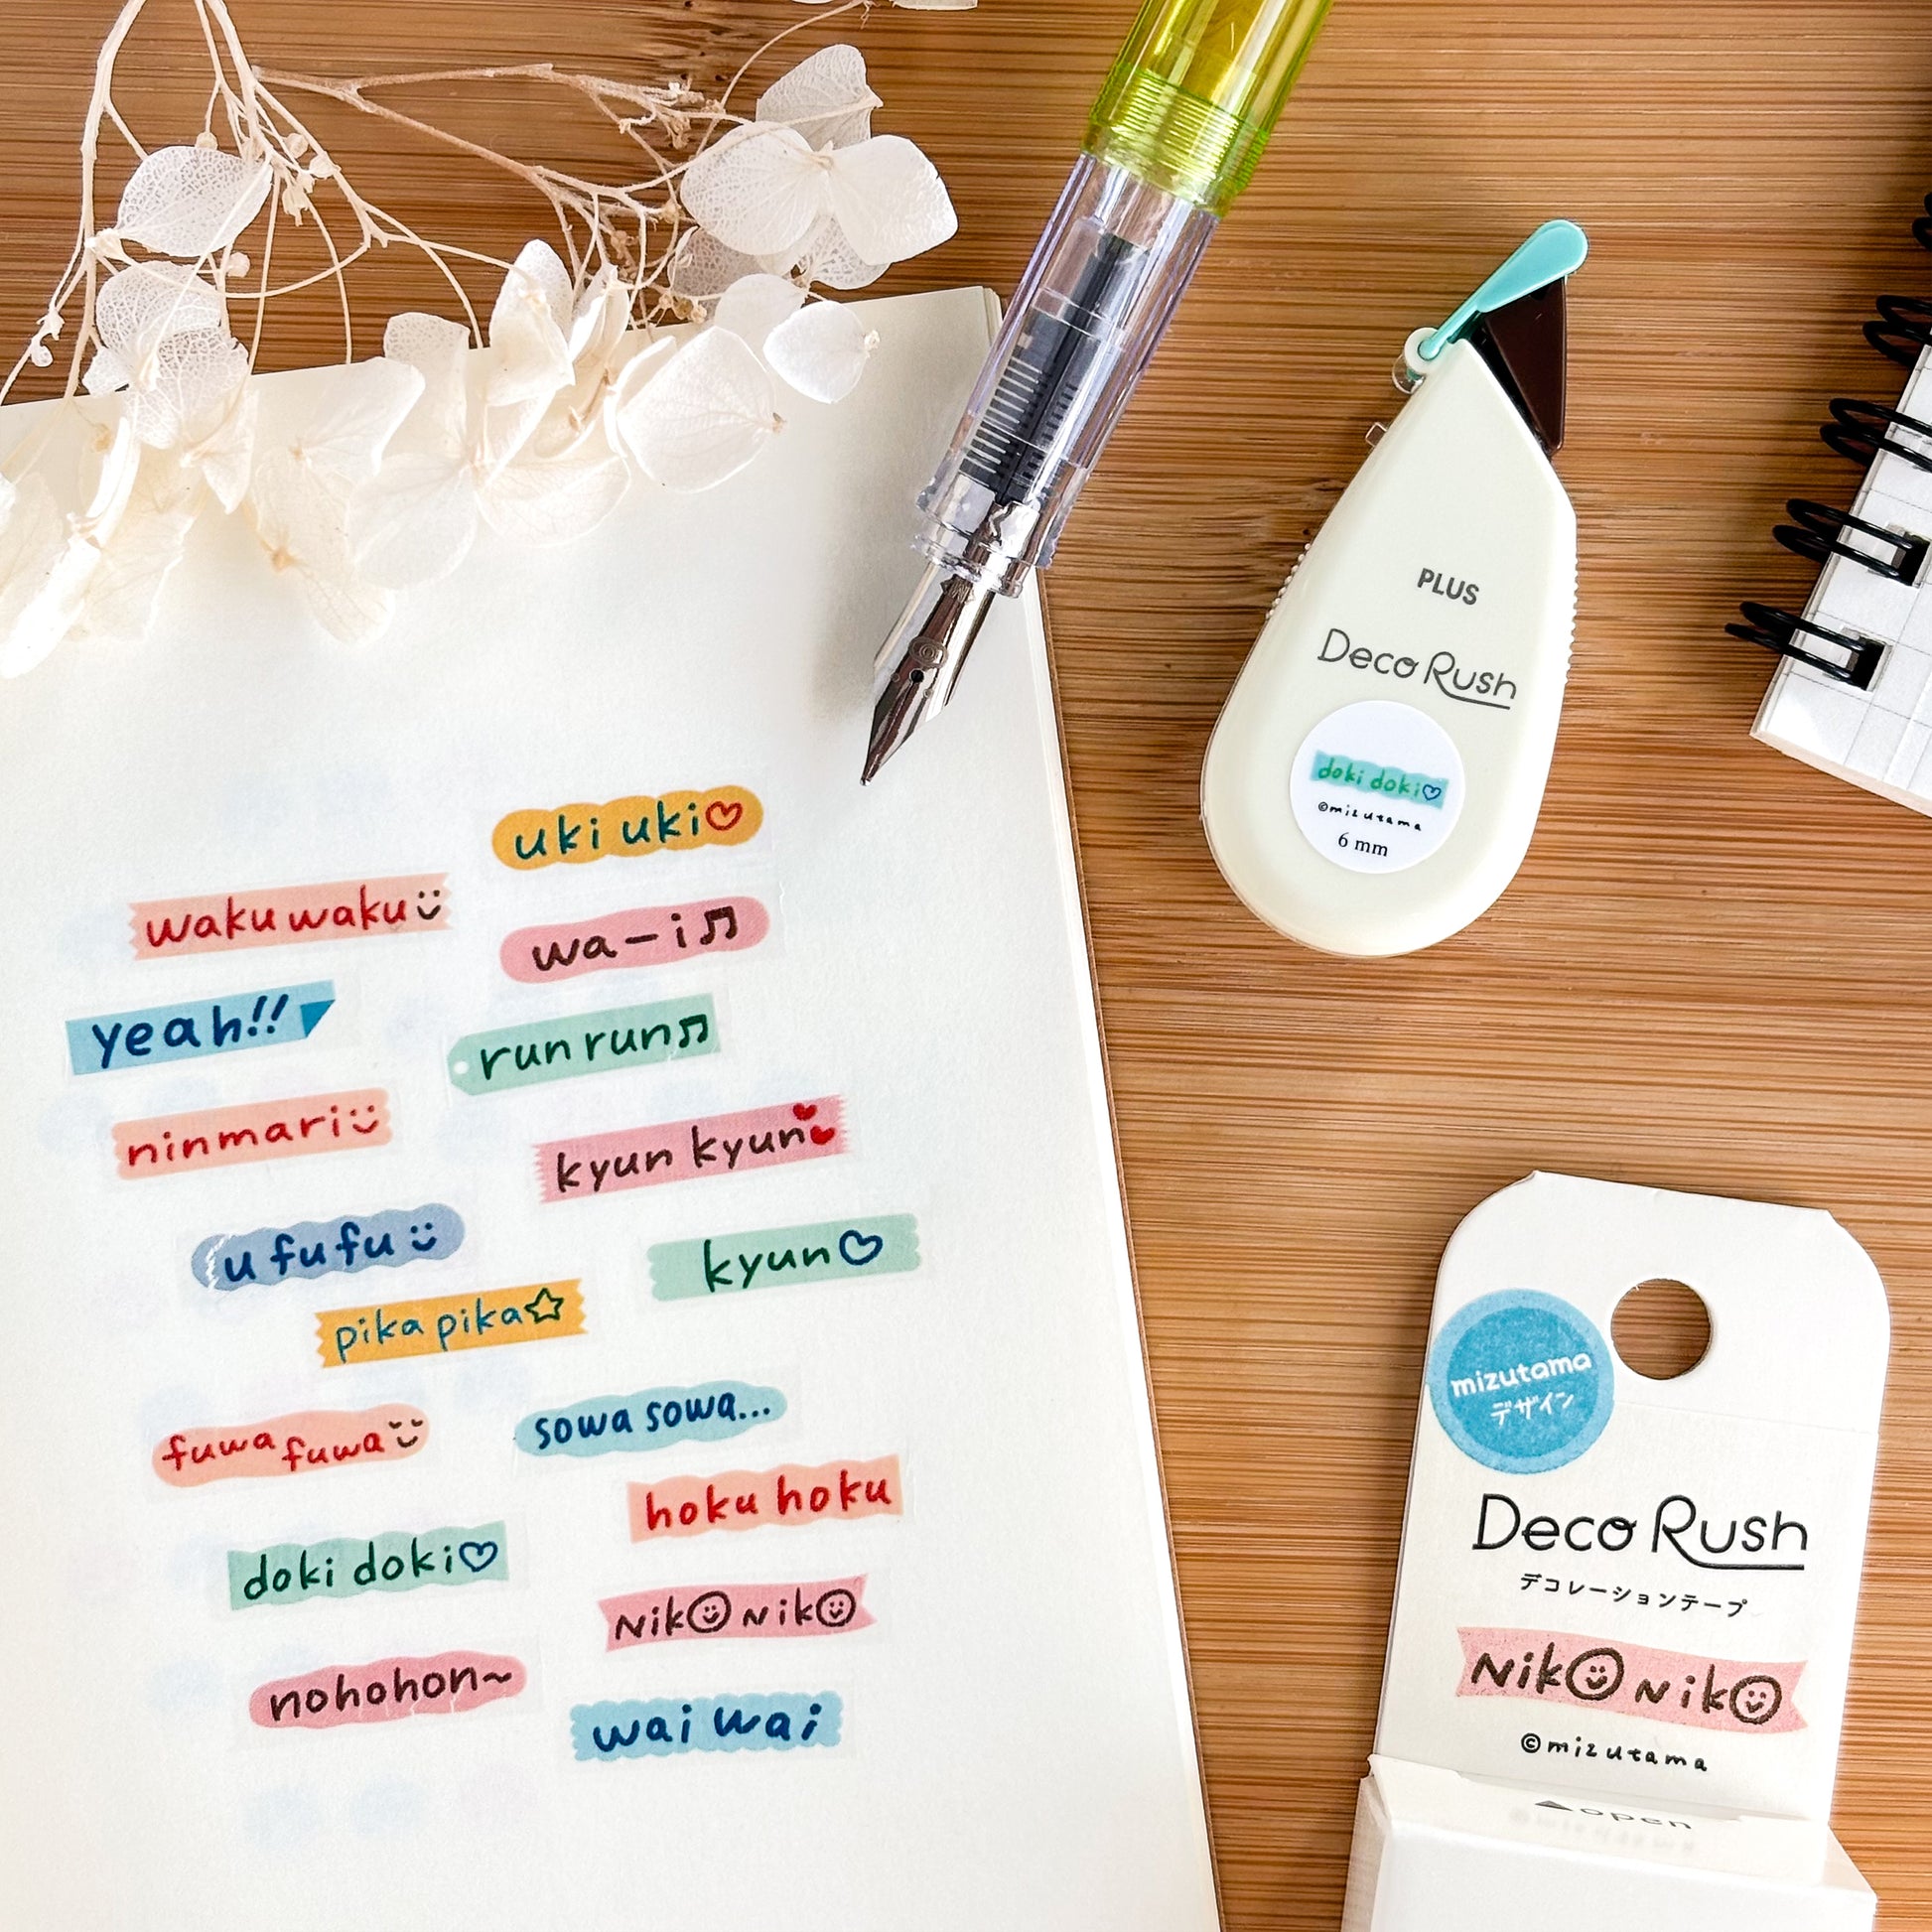 uki uki♡
waku waku
wa-i♫
yeah!!
run run♫
ninmari
kyun kyun
u fufufu
kyun♡
pika pika☆
fuwa fuwa
sowa sowa...
hoku hoku
doki doki♡
Niko Niko
nohohon~
wai wai
PLUS
Deco Rush
doki doki♡
©mizutama
6 mm
mizutama
デザイン
Deco Rush
デコレーションテープ
Niko Niko
©mizutama
▲open